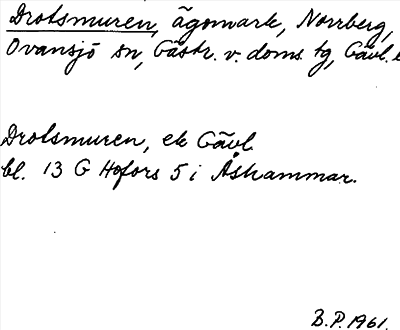 Drotsmuren, ägomark, Norrberg,
Ovansjö sn, Gästr. v. doms. tg, Gävl. l
Drotsmuren, ek Gävl
bl. 13 G Hofors 5 i Åshammar.
B.P. 1961.